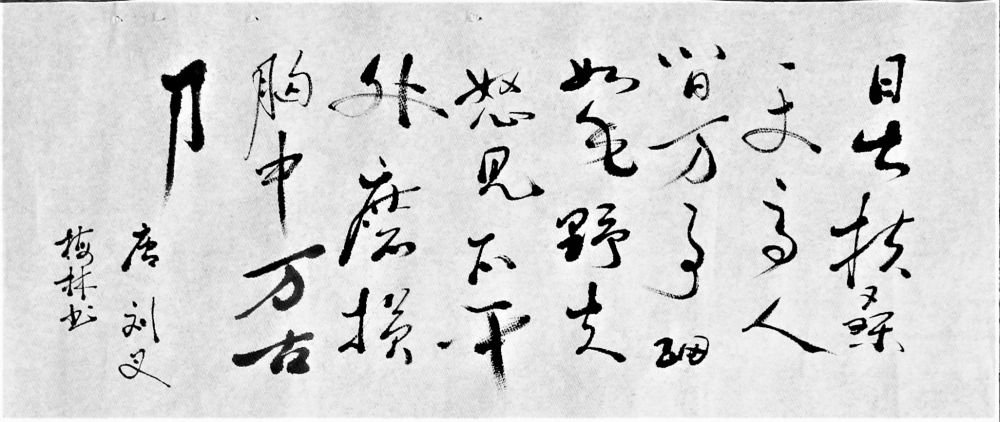 日出扶桑
一丈高人
间万事细
如毛野夫
怒见不平
处磨损
胸中万古
刀
唐刘叉
梅林书